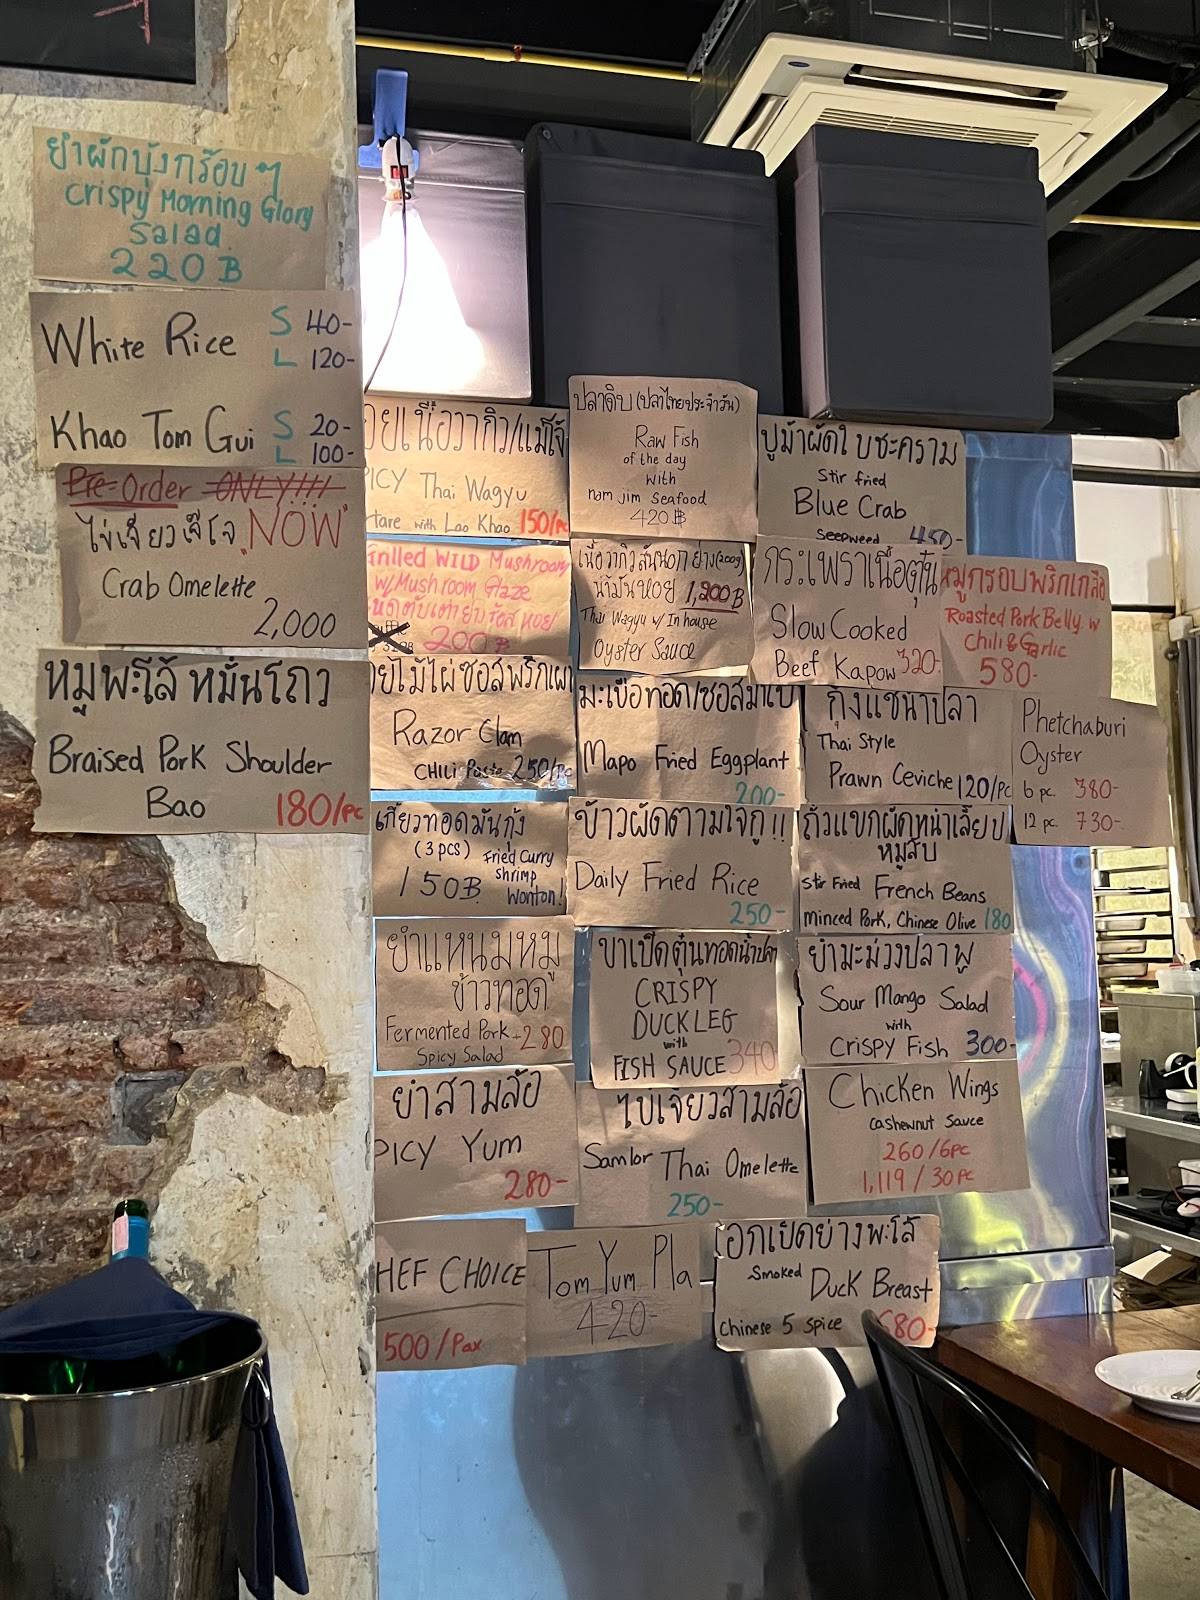 ยำผักบุ้งกร้อบ ๆ
Crispy Morning Glory
Salad
220 B
White Rice S 40-
L 120-
Khao Tom Gui S 20-
L 100-
Pre-Order ONLY!!!
ไข่เจียวเจ๊โจ "NOW"
Crab Omelette
2,000
หมูพะโล้ หมั่นโถว
Braised Pork Shoulder
Bao 180/pc
Thai Wagyu
with Lao Khao 150/pc
ปลาดิบ (ปลาไทยประจำวัน)
Raw Fish
of the day
with
nam jim Seafood
420 ฿
ปูม้าผัดใบชะคราม
Stir fried
Blue Crab
Seepweed 450-
Grilled WILD Mushroom
w/ Mushroom Glaze
200 ฿
เนื้อวากิวสันนอกย่าง (200g)
น้ำมันหอย 1,200 B
Thai Wagyu w/ In house
Oyster Sauce
กระเพราเนื้อตุ๋น
Slow Cooked
Beef Kapow 320-
หมูกรอบพริกเกลือ
Roasted Pork Belly w
Chili & Garlic
580-
Razor Clam
CHILI Paste 250/pc
Mapo Fried Eggplant
200-
กุ้งแช่น้ำปลา
Thai Style
Prawn Ceviche 120/pc
Phetchaburi
Oyster
6 pc. 380-
12 pc. 730-
เกี๊ยวทอดมันกุ้ง
(3 pcs) Fried Curry
Shrimp
150B. Wonton!
ข้าวผัดตามใจกู !!
Daily Fried Rice
250-
ถั่วแขกผัดหนำเลี๊ยบ
หมูสับ
Stir Fried French Beans
Minced Pork, Chinese Olive 180
ยำแหนมหมู
ข้าวทอด
Fermented Pork - 280
Spicy Salad
ขาเป็ดตุ๋นทอดน้ำปลา
CRISPY
DUCK LEG
with
FISH SAUCE 340
ยำมะม่วงปลาฟู
Sour Mango Salad
with
Crispy Fish 300-
ยำสามล้อ
PICY Yum
280-
ไข่เจียวสามล้อ
Samlor Thai Omelette
250-
Chicken Wings
Cashewnut Sauce
260/6pc
1,119/30pc
HEF CHOICE
500/Pax
Tom Yum Pla
420-
อกเป็ดย่างพะโล้
Smoked Duck Breast
Chinese 5 Spice 680-